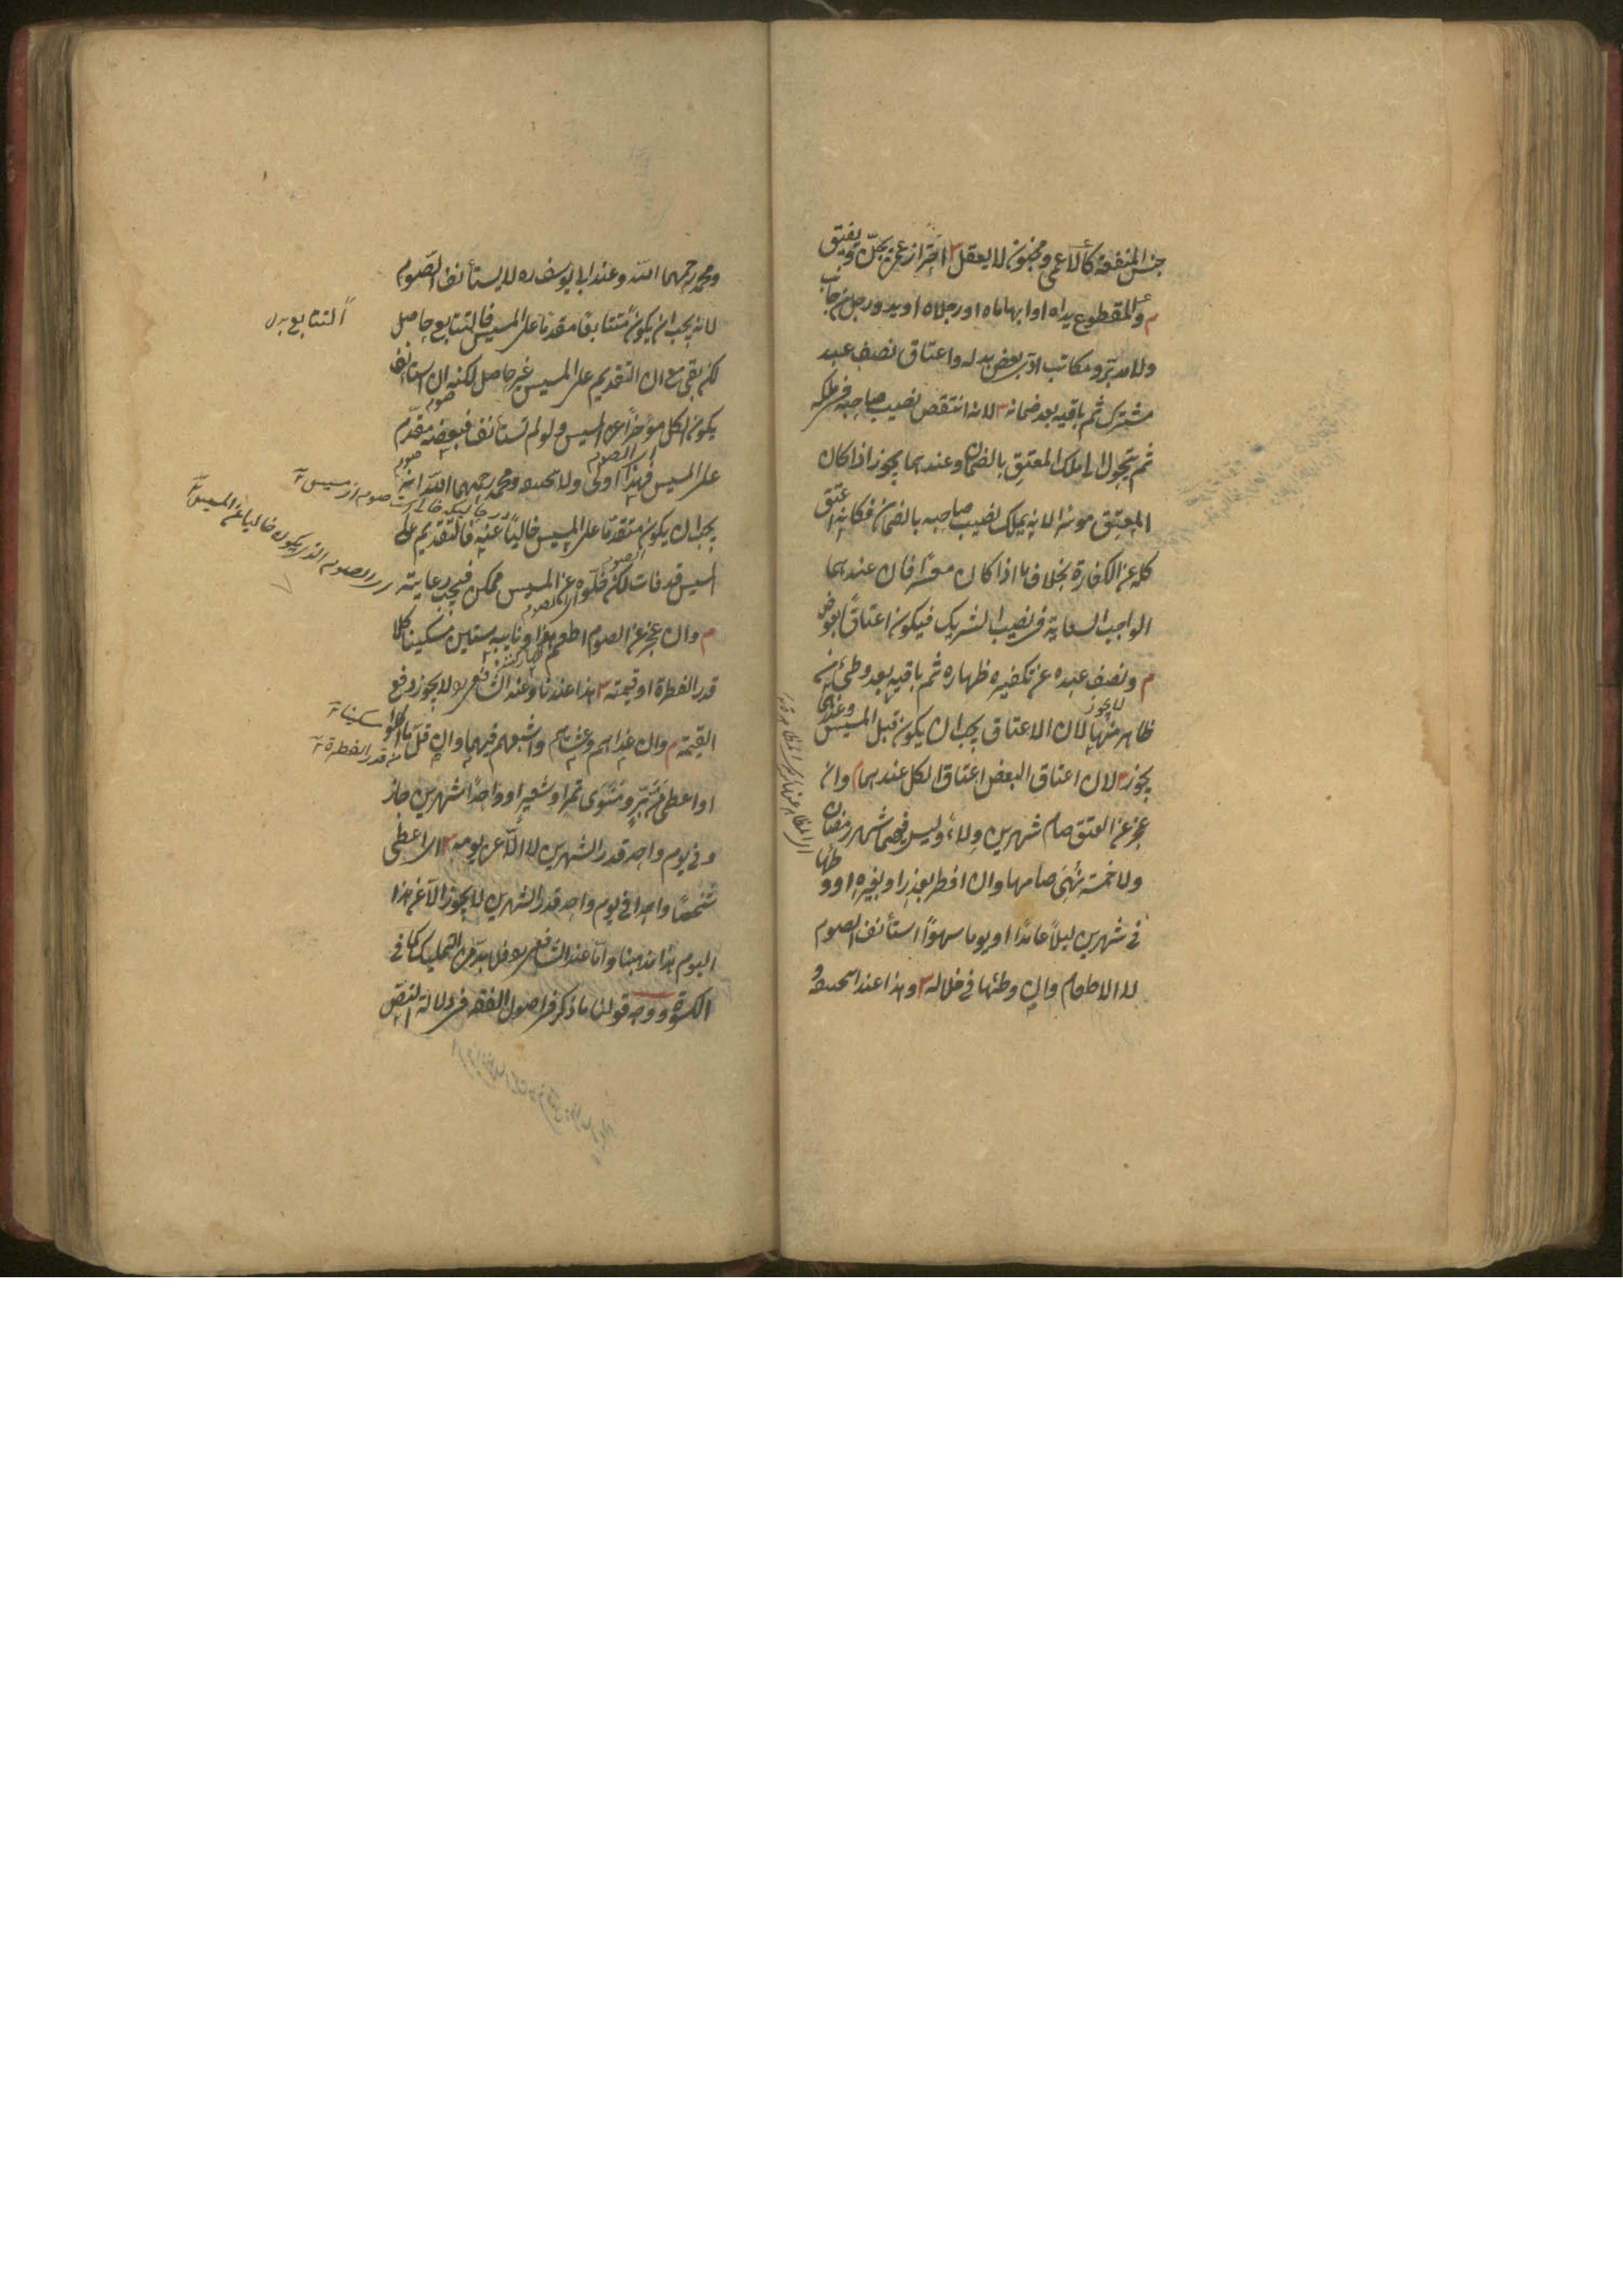 جنس المنفعة كالاعمى ومجنون لا يعقل ٣ احتراز عمن يجن ويفيق
م والمقطوع يداه او ابهاماه او رجلاه او يد ورجل من جانب
ولا مدبر ومكاتب ادى بعض بدله واعتاق نصف عبد
مشترك ثم باقيه بعد ضمانه ٣ لانه انتقص نصيب صاحبه في ملكه
ثم يتحول الى ملك المعتق بالضمان وعندهما يجوز اذا كان
المعتق موسرا لانه يملك نصيب صاحبه بالضمان فكانه اعتق
كله عن الكفارة بخلاف ما اذا كان معسرا فان عندهما
الواجب السعاية في نصيب الشريك فيكون اعتاقا بعوض
م ونصف عبده عن تكفيره ظهاره ثم باقيه بعد وطئ من
لا يجوز
ظاهر منها لان الاعتاق يجب ان يكون قبل المسيس وعندهما
يجوز ٣ لان اعتاق البعض اعتاق الكل عندهما م وان
عجز عن العتق صام شهرين ولاء وليس فيهما شهر رمضان
ولا خمسة نهي صامها وان افطر بعذر او بغيره او وطئها
في شهرين ليلا عامدا او يوما سهوا استأنف الصوم
لا الاطعام وان وطئها في خلاله ٣ وهذا عند ابي حنيفة
ومحمد رحمهما الله وعند ابي يوسف ره لا يستأنف الصوم
لانه يجب ان يكون متتابعا مقدما على المسيس فالتتابع حاصل
التتابع
لكن بقي مع ان التقديم على المسيس غير حاصل لكنه ان استأنف
صوم
يكون الكل مؤخرا عن المسيس ولو لم تستأنف فبعضه مقدم
اى الصوم
صوم
على المسيس فهذا اولى ولابي حنيفة ومحمد رحمهما الله انه
يجب ان يكون متقدما على المسيس خاليا عنه فالتقديم على
الصوم
المسيس قد فات لكن خلوه عن المسيس ممكن فيجب رعايته
الصوم الذي يكون خاليا عن المسيس
م وان عجز عن الصوم اطعم هو او نايبه ستين مسكينا كلا
قدر الفطرة او قيمته ٣ هذا عندنا وعند الشافعي ره لا يجوز دفع
القيمة م وان غداهم وعشاهم واشبعهم فيهما وان قل ما اكلوا
من قدر الفطرة
او اعطى من بر ومنوى تمر او شعير او واحدا شهرين جاز
وفي يوم واحد قدر الشهرين لا الا عن يومه ٣ اى اعطى
شخصا واحدا في يوم واحد قدر الشهرين لا يجوز الا عن هذا
اليوم هذا مذهبنا واما عند الشافعي ره فلا بد من التمليك كما في
الكسوة ووجه قولنا ما ذكر في اصول الفقه في دلالة النص